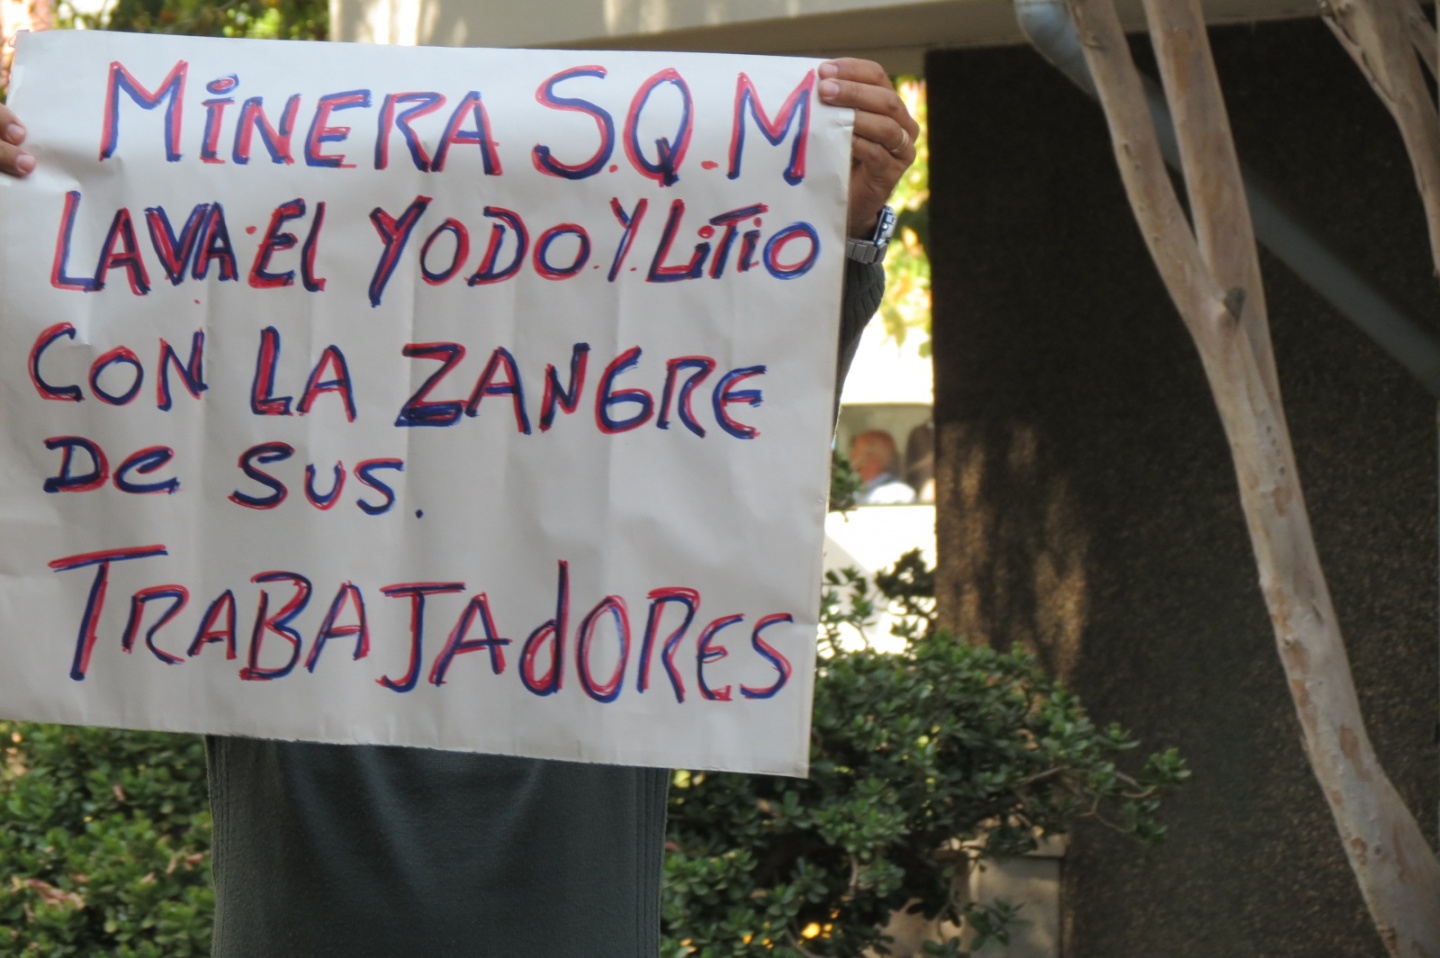 MiNERA S.Q.M
LAVA.El YODO.Y.LiTiO
CON LA ZANGRE
De SUS.
TRABAJAdORES